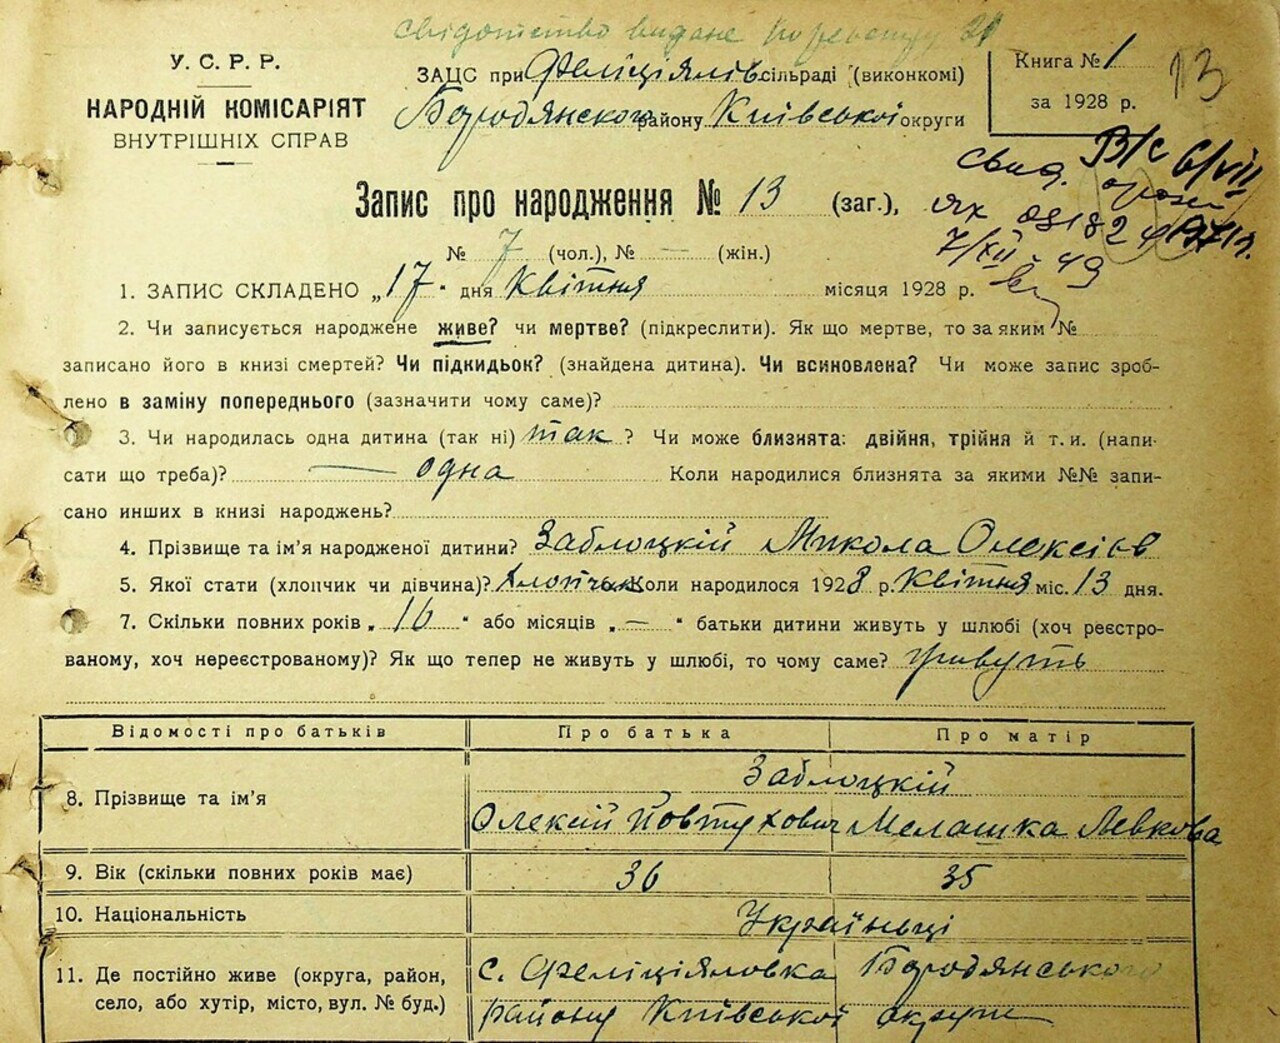 свідотство видане по реєстру 21
У. С. Р. Р.
НАРОДНІЙ КОМІСАРІЯТ
ВНУТРІШНІХ СПРАВ
ЗАЦС при Феліціялів сільраді (виконкомі)
Бородянского району Київської округи
Книга № 1
за 1928 р.
13
Запис про народження № 13 (заг.),
№ 7 (чол.), № — (жін.)
В/с 6/VII
свид.
ях 08182
7/XII 49
1. ЗАПИС СКЛАДЕНО „17" дня Квітня місяця 1928 р.
2. Чи записується народжене живе? чи мертве? (підкреслити). Як що мертве, то за яким №
записано його в книзі смертей? Чи підкидьок? (знайдена дитина). Чи всиновлена? Чи може запис зроб-
лено в заміну попереднього (зазначити чому саме)?
3. Чи народилась одна дитина (так ні) так ? Чи може близнята: двійня, трійня й т. и. (напи-
сати що треба)? — одна Коли народилися близнята за якими №№ запи-
сано инших в книзі народжень?
4. Прізвище та ім'я народженої дитини? Заблоцкій Микола Олексіїв
5. Якої стати (хлопчик чи дівчина)? Хлопчик Коли народилося 1928 р. Квітня міс. 13 дня.
7. Скільки повних років „ 16 " або місяців „ — " батьки дитини живуть у шлюбі (хоч реєстро-
ваному, хоч нереєстрованому)? Як що тепер не живуть у шлюбі, то чому саме? живуть
Відомості про батьків Про батька Про матір
8. Прізвище та ім'я Заблоцкій
Олексій Йовтухович Мелашка Левкова
9. Вік (скільки повних років має) 36 35
10. Національність Україньці
11. Де постійно живе (округа, район, с. Феліціяловка Бородянського
село, або хутір, місто, вул. № буд.) району Київської округи